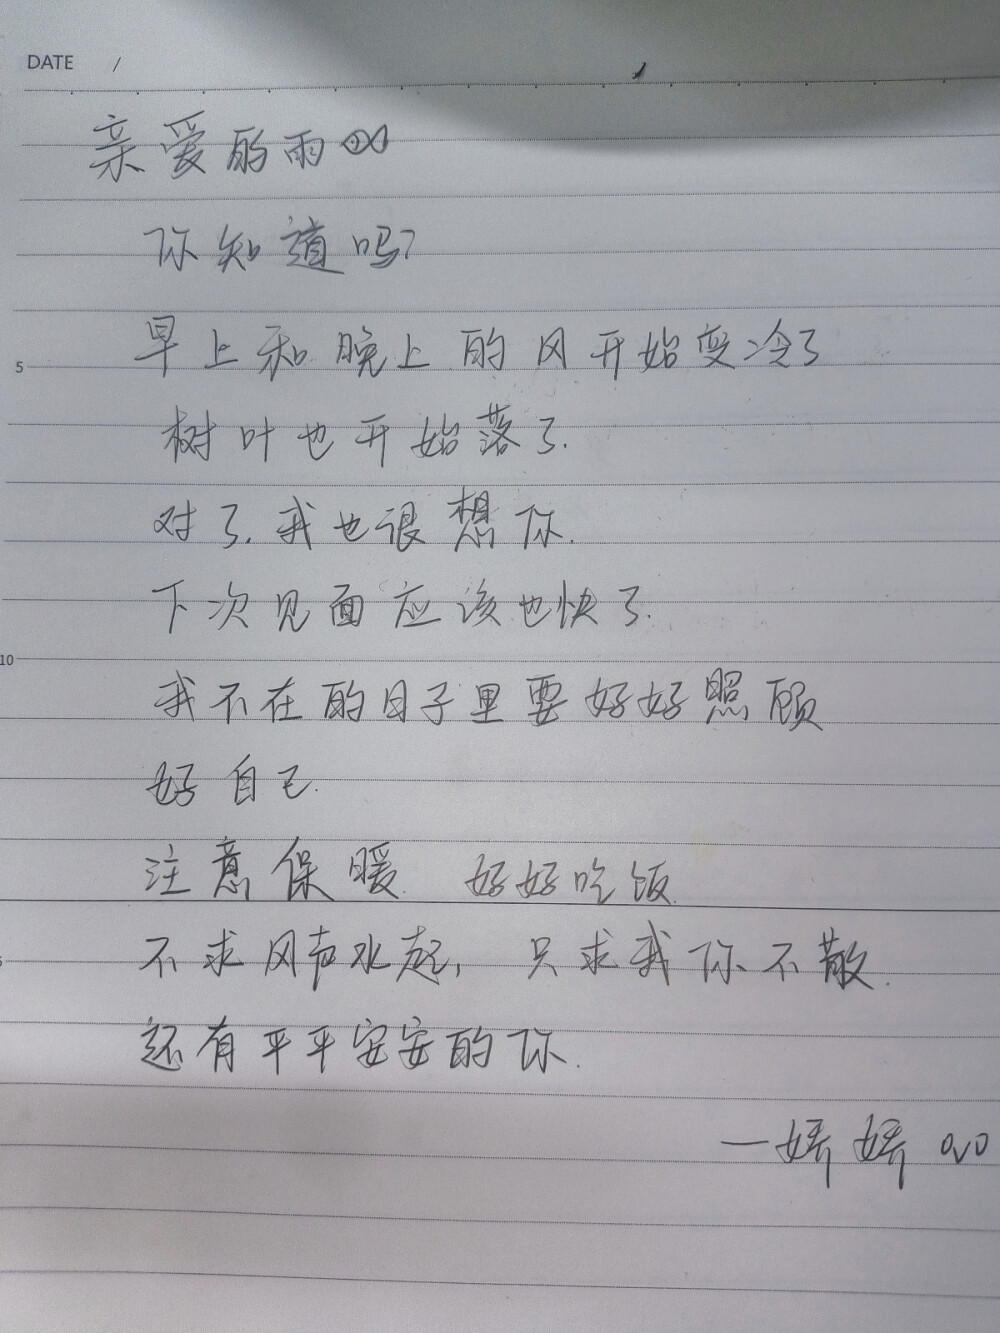 DATE /
亲爱的雨
你知道吗?
早上和晚上的风开始变冷了
5
树叶也开始落了.
对了.我也很想你.
下次见面应该也快了.
10
我不在的日子里要好好照顾
好自己.
注意保暖. 好好吃饭.
不求风声水起, 只求我你不散.
还有平平安安的你.
—娇娇 QvQ